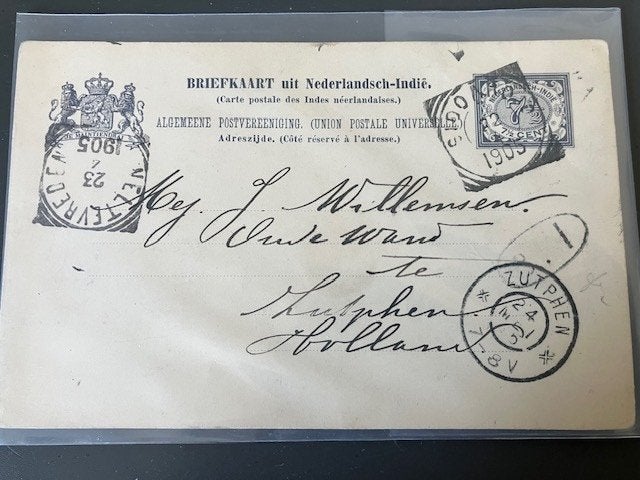 BRIEFKAART uit Nederlandsch-Indië.
(Carte postale des Indes néerlandaises.)
ALGEMEENE POSTVEREENIGING. (UNION POSTALE UNIVERSELLE)
Adreszijde. (Côté réservé à l'adresse.)
7½
7½ CENT
1905
WELTEVREDEN
23
1905
Mej. J. Willemsen.
Oude Wand
te
Zutphen
Holland
1
ZUTPHEN
24
7-8V